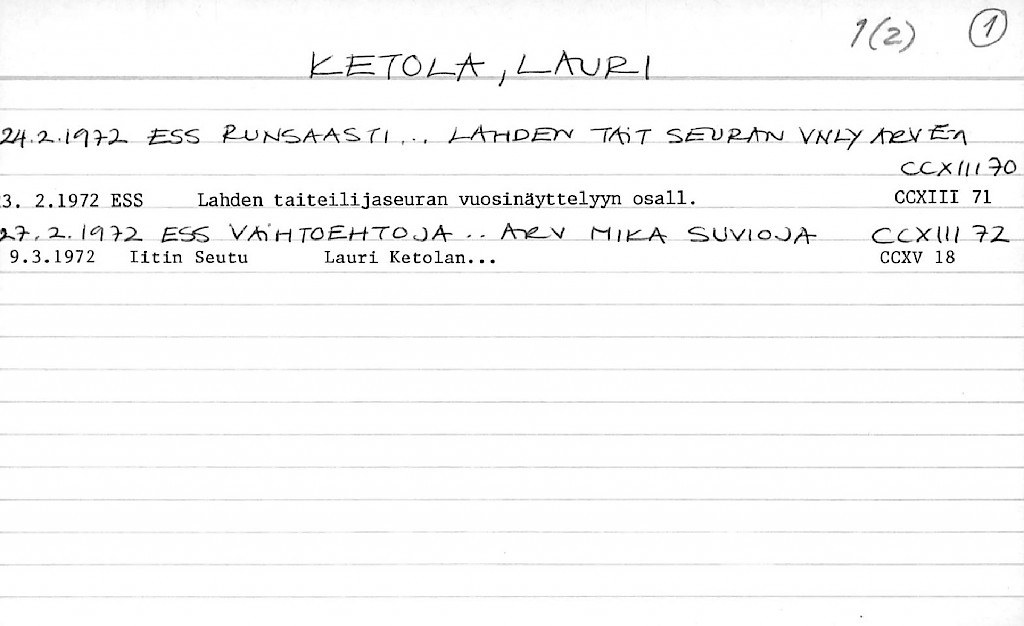 1(2) 1
KETOLA, LAURI
24.2.1972 ESS RUNSAASTI... LAHDEN TAIT SEURAN VNLY ARV EA
CCXIII 70
3. 2.1972 ESS Lahden taiteilijaseuran vuosinäyttelyyn osall. CCXIII 71
27.2.1972 ESS VAIHTOEHTOJA .. ARV MIKA SUVIOJA CCXIII 72
9.3.1972 Iitin Seutu Lauri Ketolan... CCXV 18